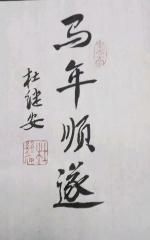 马年顺遂
杜建安